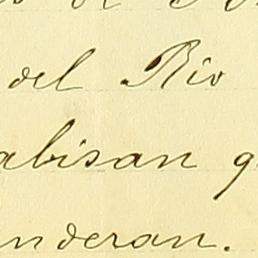 del Rio
abisan q
nderan.